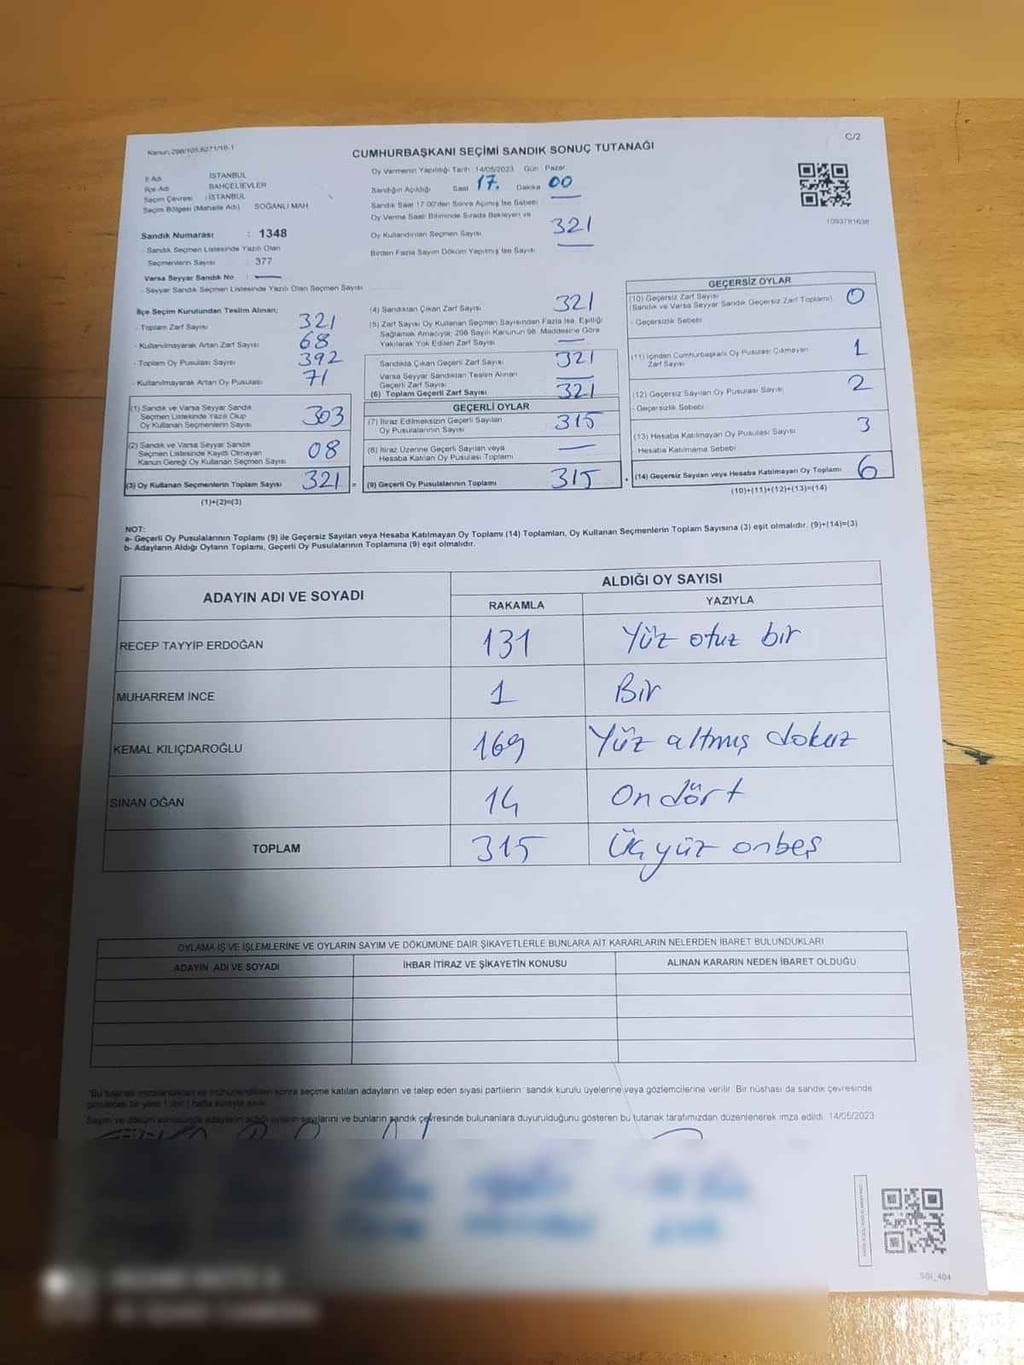 Kanun: 298/105,6271/16-1
C/2
CUMHURBAŞKANI SEÇİMİ SANDIK SONUÇ TUTANAĞI
İl Adı : İSTANBUL
İlçe Adı : BAHÇELİEVLER
Seçim Çevresi : İSTANBUL
Seçim Bölgesi (Mahalle Adı) : SOĞANLI MAH
Sandık Numarası : 1348
Sandık Seçmen Listesinde Yazılı Olan
Seçmenlerin Sayısı : 377
Varsa Seyyar Sandık No :
Seyyar Sandık Seçmen Listesinde Yazılı Olan Seçmen Sayısı :
Oy Vermenin Yapıldığı Tarih : 14/05/2023 Gün : Pazar
Sandığın Açıldığı Saat 17. Dakika 00
Sandık Saat 17:00'den Sonra Açılmış İse Sebebi :
Oy Verme Saati Bitiminde Sırada Bekleyen ve
Oy Kullandırılan Seçmen Sayısı 321
Birden Fazla Sayım Döküm Yapılmış İse Sayısı
1093781638
İlçe Seçim Kurulundan Teslim Alınan;
- Toplam Zarf Sayısı 321
- Kullanılmayarak Artan Zarf Sayısı 68
- Toplam Oy Pusulası Sayısı 392
- Kullanılmayarak Artan Oy Pusulası 71
(1) Sandık ve Varsa Seyyar Sandık
Seçmen Listesinde Yazılı Olup
Oy Kullanan Seçmenlerin Sayısı 303
(2) Sandık ve Varsa Seyyar Sandık
Seçmen Listesinde Kaydı Olmayan
Kanun Gereği Oy Kullanan Seçmen Sayısı 08
(3) Oy Kullanan Seçmenlerin Toplam Sayısı 321 =
(1)+(2)=(3)
(4) Sandıktan Çıkan Zarf Sayısı 321
(5) Zarf Sayısı Oy Kullanan Seçmen Sayısından Fazla İse, Eşitliği
Sağlamak Amacıyla; 298 Sayılı Kanunun 98. Maddesine Göre
Yakılarak Yok Edilen Zarf Sayısı
Sandıkta Çıkan Geçerli Zarf Sayısı 321
Varsa Seyyar Sandıktan Teslim Alınan
Geçerli Zarf Sayısı
(6) Toplam Geçerli Zarf Sayısı 321
GEÇERLİ OYLAR
(7) İtiraz Edilmeksizin Geçerli Sayılan
Oy Pusulalarının Sayısı 315
(8) İtiraz Üzerine Geçerli Sayılan veya
Hesaba Katılan Oy Pusulası Toplamı
(9) Geçerli Oy Pusulalarının Toplamı 315 +
GEÇERSİZ OYLAR
(10) Geçersiz Zarf Sayısı
(Sandık ve Varsa Seyyar Sandık Geçersiz Zarf Toplamı) 0
- Geçersizlik Sebebi
(11) İçinden Cumhurbaşkanı Oy Pusulası Çıkmayan
Zarf Sayısı 1
(12) Geçersiz Sayılan Oy Pusulası Sayısı 2
- Geçersizlik Sebebi
(13) Hesaba Katılmayan Oy Pusulası Sayısı 3
Hesaba Katılmama Sebebi
(14) Geçersiz Sayılan veya Hesaba Katılmayan Oy Toplamı 6
(10)+(11)+(12)+(13)=(14)
NOT:
a- Geçerli Oy Pusulalarının Toplamı (9) ile Geçersiz Sayılan veya Hesaba Katılmayan Oy Toplamı (14) Toplamları, Oy Kullanan Seçmenlerin Toplam Sayısına (3) eşit olmalıdır. (9)+(14)=(3)
b- Adayların Aldığı Oyların Toplamı, Geçerli Oy Pusulalarının Toplamına (9) eşit olmalıdır.
ADAYIN ADI VE SOYADI
ALDIĞI OY SAYISI
RAKAMLA YAZIYLA
RECEP TAYYİP ERDOĞAN 131 Yüz otuz bir
MUHARREM İNCE 1 Bir
KEMAL KILIÇDAROĞLU 169 Yüz altmış dokuz
SİNAN OĞAN 14 On dört
TOPLAM 315 Üçyüz onbeş
OYLAMA İŞ VE İŞLEMLERİNE VE OYLARIN SAYIM VE DÖKÜMÜNE DAİR ŞİKAYETLERLE BUNLARA AİT KARARLARIN NELERDEN İBARET BULUNDUKLARI
ADAYIN ADI VE SOYADI İHBAR İTİRAZ VE ŞİKAYETİN KONUSU ALINAN KARARIN NEDEN İBARET OLDUĞU
sonra seçime katılan adayların ve talep eden siyasi partilerin sandık kurulu üyelerine veya gözlemcilerine verilir. Bir nüshası da sandık çevresinde
ve bunların sandık çevresinde bulunanlara duyurulduğunu gösteren bu tutanak tarafımızdan düzenlenerek imza edildi. 14/05/2023